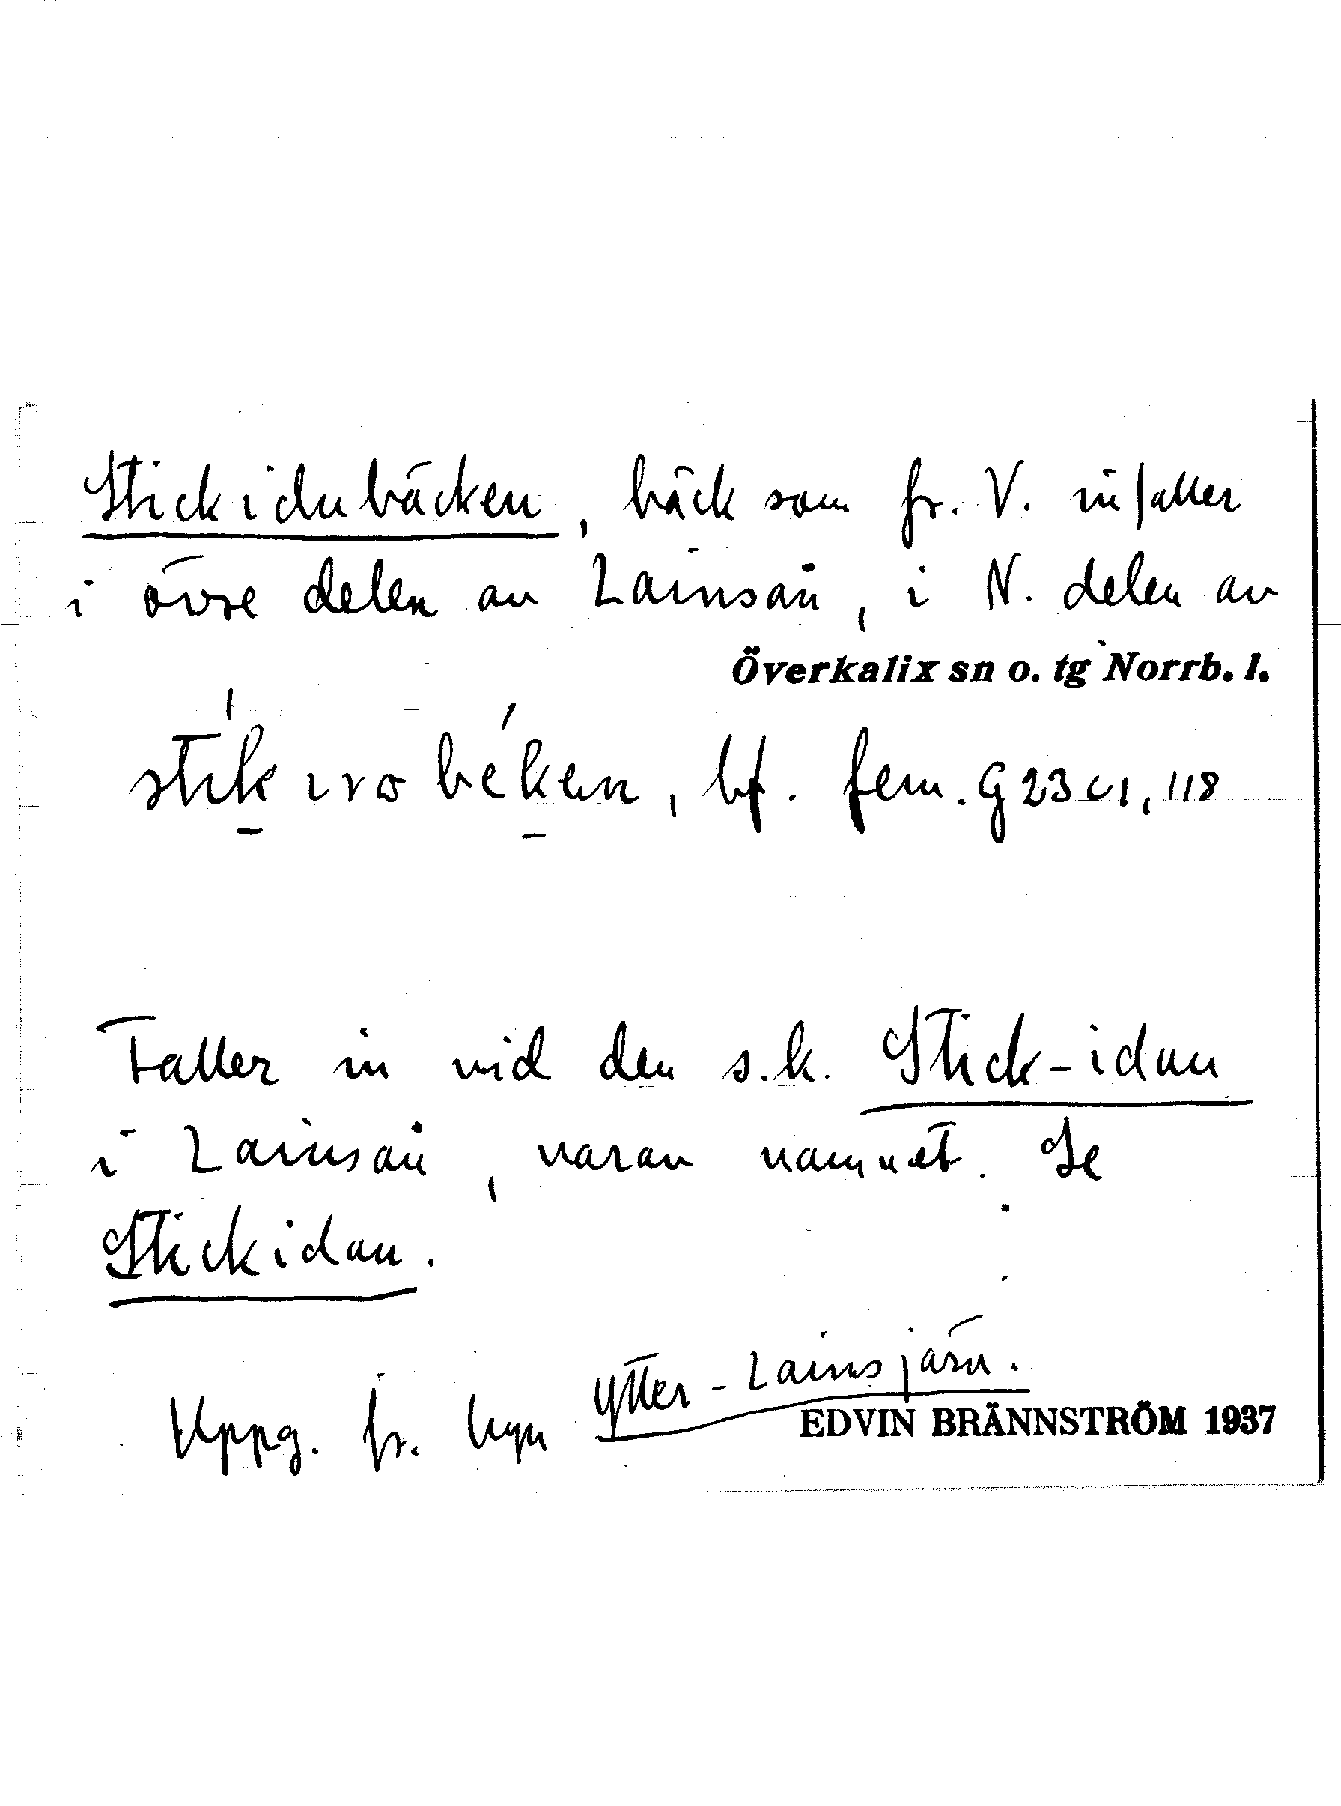 Stickidubäcken, bäck som fr. V. infaller
i övre delen av Lainsån, i N. delen av
Överkalix sn o. tg Norrb. l.
bf. fem. G 23 c1, 118
Faller in vid den s.k. Stick-idan
i Lainsån, varav namnet. Se
Stickidan.
Uppg. fr. byn Ytter-Lainsjärv.
EDVIN BRÄNNSTRÖM 1937